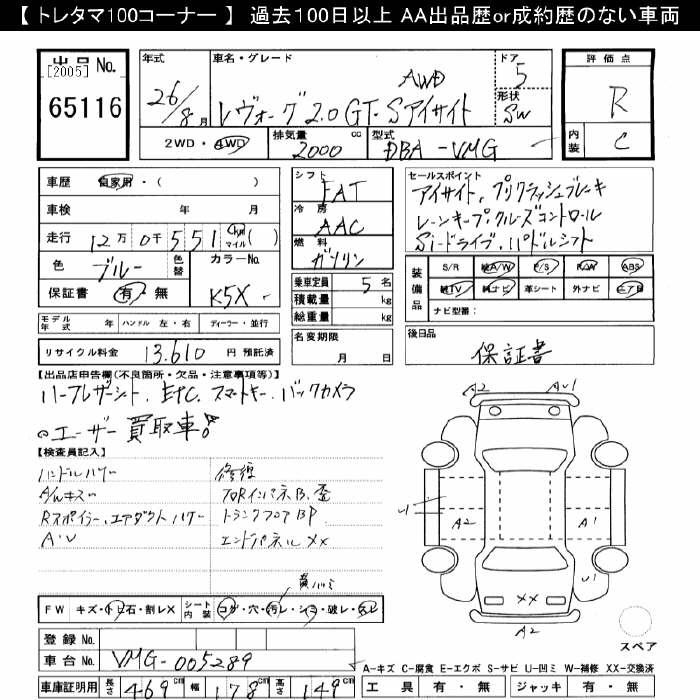 【 トレタマ100コーナー 】 過去100日以上 AA出品歴or成約歴のない車両
出品 No.
[2005]
65116
年式
26/8月
車名・グレード
AWD
レヴォーグ2.0GT-Sアイサイト
ドア
5
形状
SW
評価点
R
内装
C
2WD・4WD
排気量
2000 cc
型式
DBA-VMG
車歴 自家用・( )
車検 年 月
走行 12万 0千 551 km マイル ( )
色 ブルー 色替
カラーNo. K5X
保証書 有・無
シフト
FAT
冷房
AAC
燃料
ガソリン
乗車定員 5名
積載量 kg
総重量 kg
セールスポイント
アイサイト、プリクラッシュブレーキ
レーンキープ、クルーズコントロール
Siードライブ、パドルシフト
装備品 S/R 純A/W P/S P/W ABS
純TV 純ナビ 革シート 外ナビ エアB
ナビ型番:
モデル年式 年 ハンドル 左・右 ディーラー・並行
リサイクル料金 13,610 円 預託済
名変期限
月 日
後日品
保証書
【出品店申告欄(不良箇所・欠品・注意事項等)】
ハーフレザーシート、ETC、スマートキー、バックカメラ
◎ユーザー買取車!
【検査員記入】
ハンドルハゲ
A/Wキズ
Rスポイラー、エアダクトハゲ
A・U
修復
フロアインパネB、歪
トランクフロアBP
エンドパネルXX
FW キズ・トビ石・割レX
シート内装 コゲ・穴・汚レ・シミ・破レ・スレ
登録 No.
車台 No. VMG-005289
車庫証明用 長さ 469cm 幅 178cm 高さ 149cm
A2 AU1
U1 A2 A1
U1
XX
A2
スペア
A-キズ C-腐食 E-エクボ S-サビ U-凹ミ W-補修 XX-交換済
工具 有・無 ジャッキ 有・無